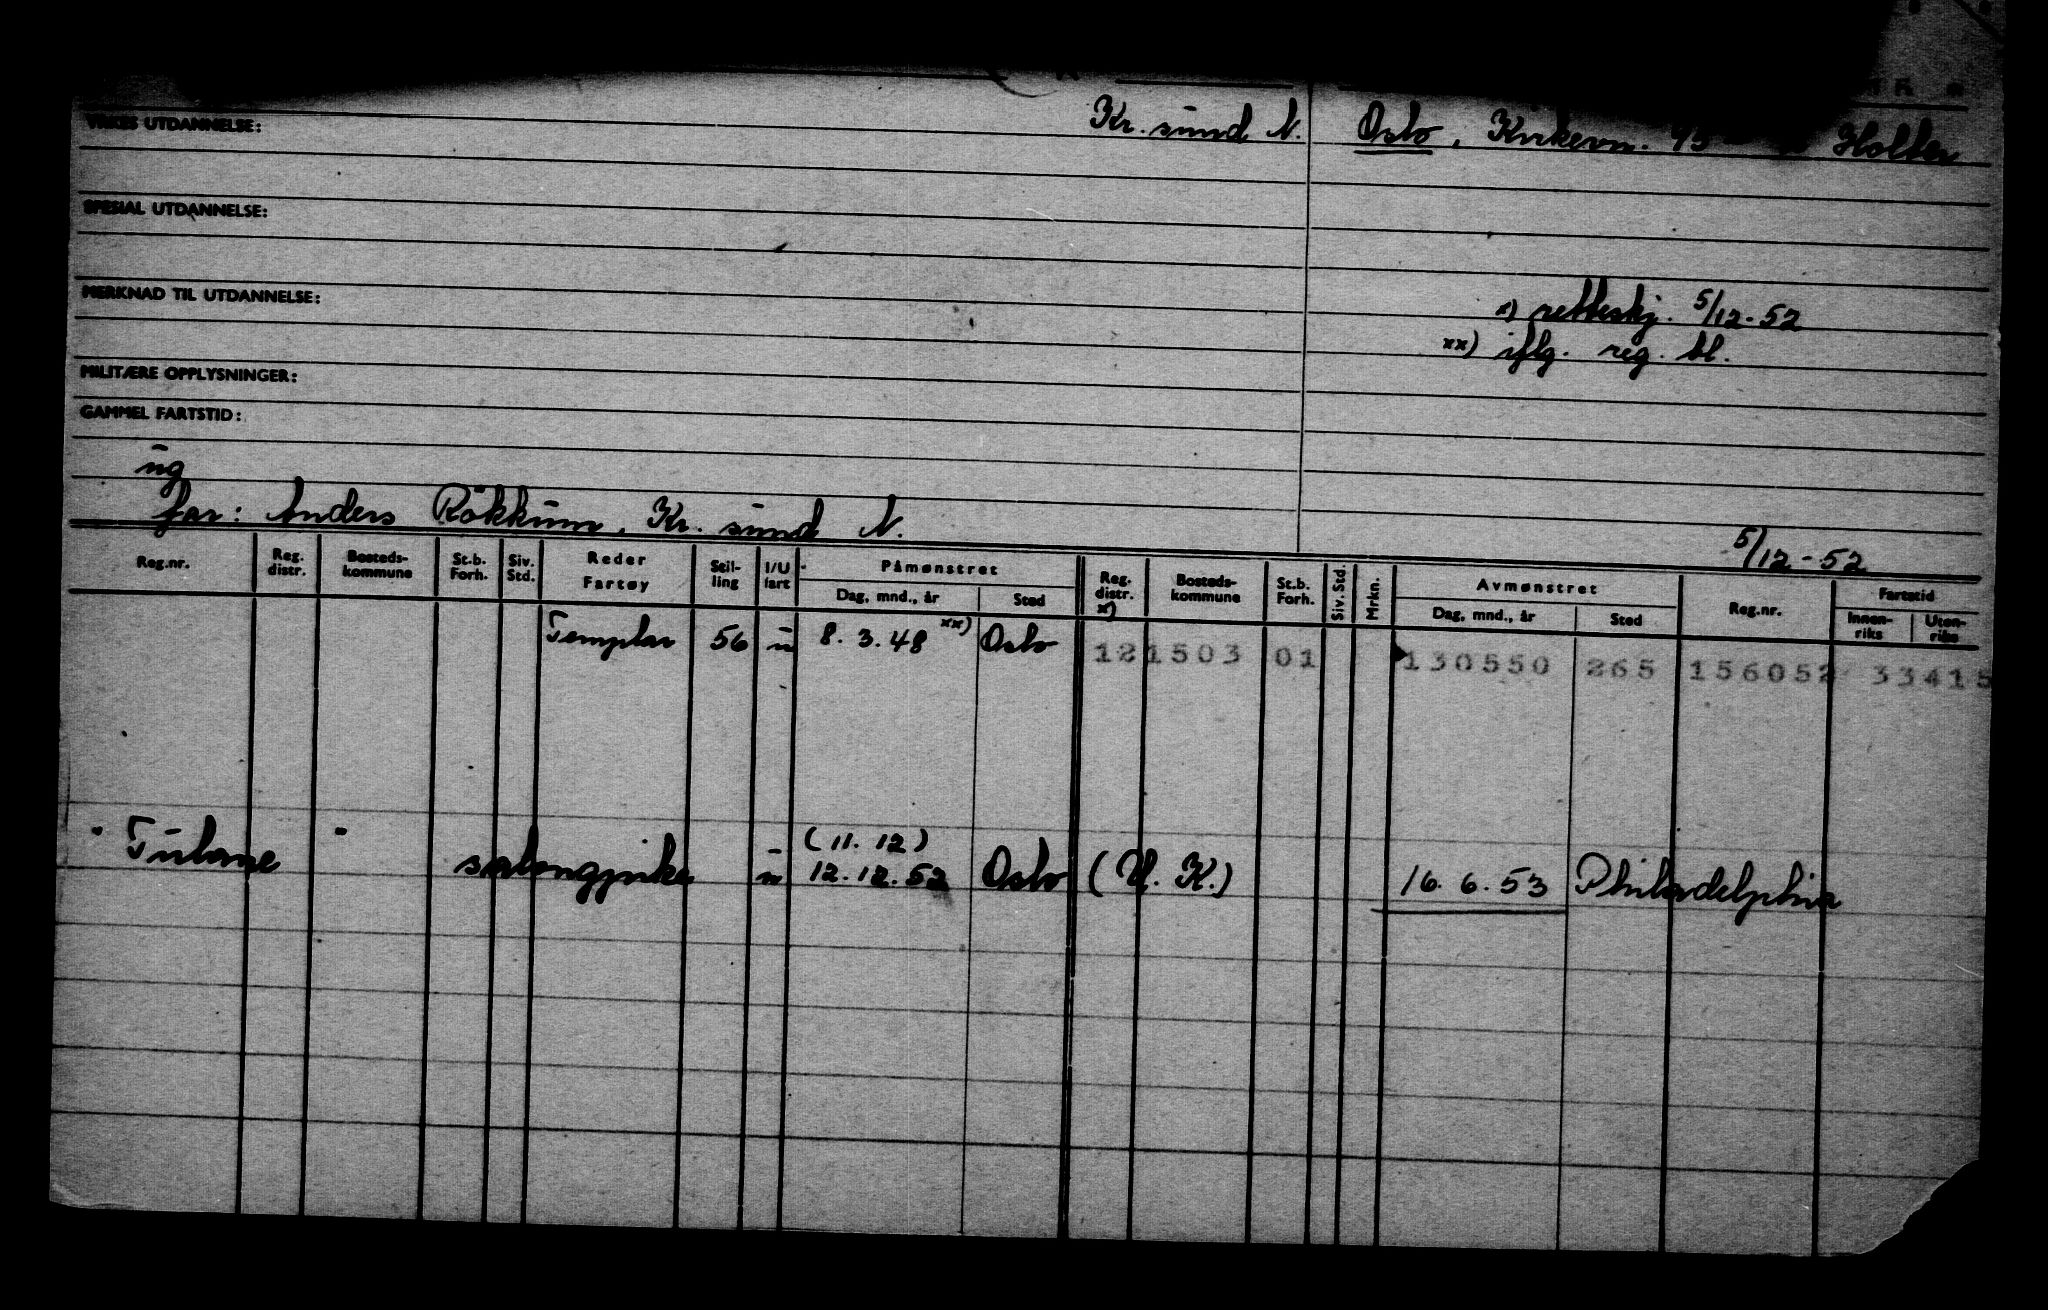 Kr. sund N. Oslo, Kirkevn. 93 Holter
YRKES UTDANNELSE:
SPESIAL UTDANNELSE:
MERKNAD TIL UTDANNELSE:
x) retteskj. 5/12-52
xx) iflg. reg. bl.
MILITÆRE OPPLYSNINGER:
GAMMEL FARTSTID:
ug
far: Anders Rökkum, Kr. sund N.
5/12-52
Reg.nr. Reg. distr. Bosteds-kommune St.b. Forh. Siv. Std. Reder Fartøy Stil-ling I/U fart Påmønstret Dag, mnd., år Sted Reg. distr. x) Bosteds-kommune St.b. Forh. Siv. Std. Mrkn. Avmønstret Dag, mnd., år Sted Reg.nr. Fartstid Innen-riks Uten-riks
Templar 56 u 8. 3. 48 xx) Oslo 12 1503 01 130550 265 156052 33415
(11. 12)
Tulane salongpike u 12. 12. 52 Oslo (U. K.) 16. 6. 53 Philadelphia